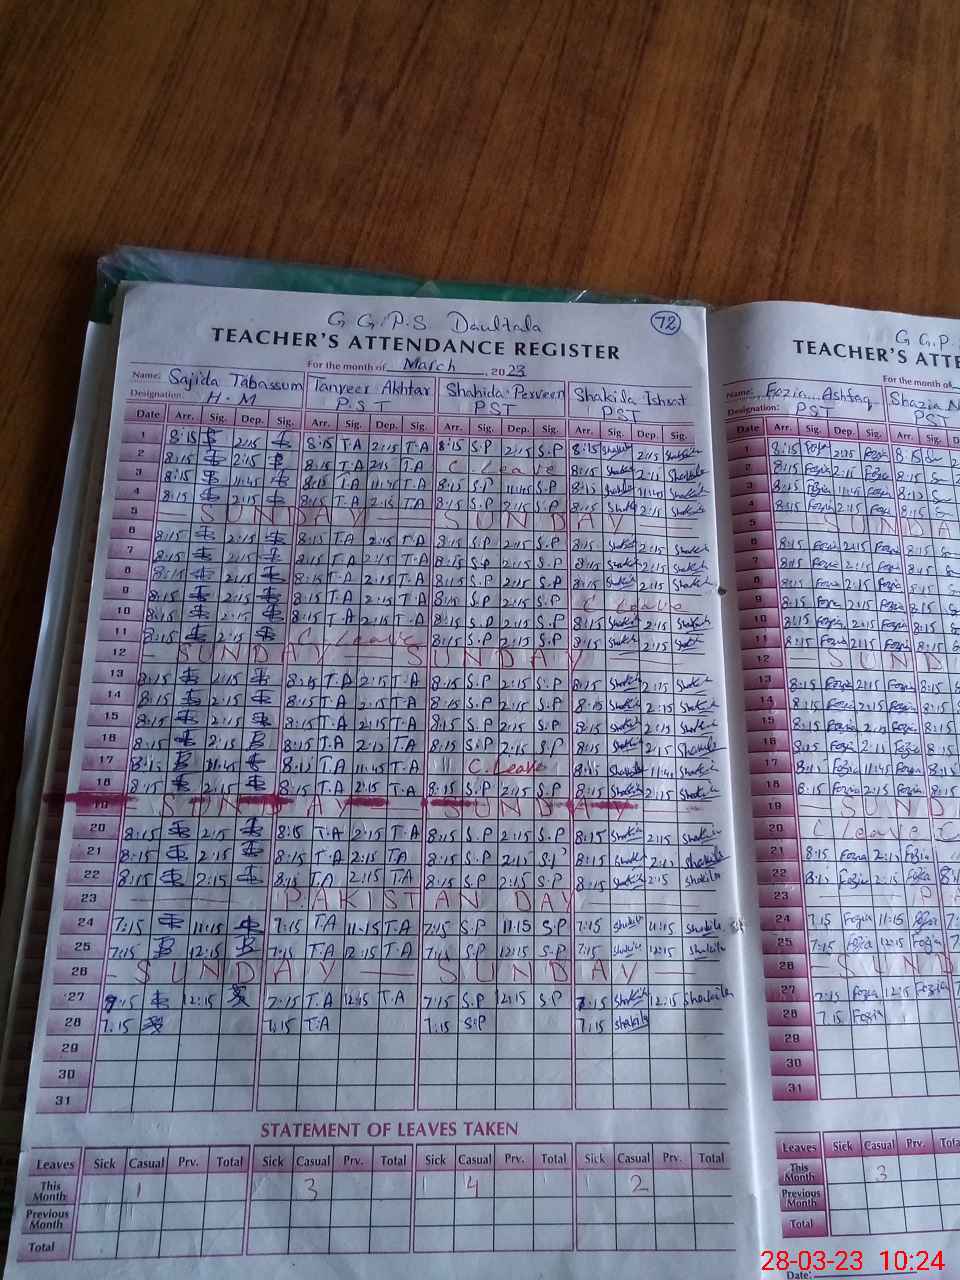 G.G.P.S Daultala
72
TEACHER'S ATTENDANCE REGISTER
For the month of March, 2023
Name: Sajida Tabassum Tanveer Akhtar Shahida Perveen Shakila Ishrat
Designation: H.M PST PST PST
Date Arr. Sig. Dep. Sig. Arr. Sig. Dep. Sig. Arr. Sig. Dep. Sig. Arr. Sig. Dep. Sig.
1 8:15 2:15 8:15 T.A 2:15 T.A 8:15 S.P 2:15 S.P 8:15 Shakila 2:15 Shakila
2 8:15 2:15 8:15 T.A 2:15 T.A C. Leave 8:15 Shakila 2:15 Shakila
3 8:15 11:45 8:15 T.A 11:45 T.A 8:15 S.P 11:45 S.P 8:15 Shakila 11:45 Shakila
4 8:15 2:15 8:15 T.A 2:15 T.A 8:15 S.P 2:15 S.P 8:15 Shakila 2:15 Shakila
5 — SUNDAY — SUNDAY —
6 8:15 2:15 8:15 T.A 2:15 T.A 8:15 S.P 2:15 S.P 8:15 Shakila 2:15 Shakila
7 8:15 2:15 8:15 T.A 2:15 T.A 8:15 S.P 2:15 S.P 8:15 Shakila 2:15 Shakila
8 8:15 2:15 8:15 T.A 2:15 T.A 8:15 S.P 2:15 S.P 8:15 Shakila 2:15 Shakila
9 8:15 2:15 8:15 T.A 2:15 T.A 8:15 S.P 2:15 S.P C Leave
10 8:15 2:15 8:15 T.A 2:15 T.A 8:15 S.P 2:15 S.P 8:15 Shakila 2:15 Shakila
11 8:15 2:15 C. Leave 8:15 S.P 2:15 S.P 8:15 Shakila 2:15 Shakila
12 — SUNDAY — SUNDAY —
13 8:15 2:15 8:15 T.A 2:15 T.A 8:15 S.P 2:15 S.P 8:15 Shakila 2:15 Shakila
14 8:15 2:15 8:15 T.A 2:15 T.A 8:15 S.P 2:15 S.P 8:15 Shakila 2:15 Shakila
15 8:15 2:15 8:15 T.A 2:15 T.A 8:15 S.P 2:15 S.P 8:15 Shakila 2:15 Shakila
16 8:15 2:15 8:15 T.A 2:15 T.A 8:15 S.P 2:15 S.P 8:15 Shakila 2:15 Shakila
17 8:15 11:45 8:15 T.A 11:45 T.A C. Leave 8:15 Shakila 11:45 Shakila
18 8:15 2:15 8:15 T.A 2:15 T.A 8:15 S.P 2:15 S.P 8:15 Shakila 2:15 Shakila
19 — SUNDAY — SUNDAY —
20 8:15 2:15 8:15 T.A 2:15 T.A 8:15 S.P 2:15 S.P 8:15 Shakila 2:15 Shakila
21 8:15 2:15 8:15 T.A 2:15 T.A 8:15 S.P 2:15 S.P 8:15 Shakila 2:15 Shakila
22 8:15 2:15 8:15 T.A 2:15 T.A 8:15 S.P 2:15 S.P 8:15 Shakila 2:15 Shakila
23 — PAKISTAN DAY —
24 7:15 11:15 7:15 T.A 11-15 T.A 7:15 S.P 11:15 S.P 7:15 Shakila 11:15 Shakila
25 7:15 12:15 7:15 T.A 12:15 T.A 7:15 S.P 12:15 S.P 7:15 Shakila 12:15 Shakila
26 — SUNDAY — SUNDAY —
27 7:15 12:15 7:15 T.A 12:15 T.A 7:15 S.P 12:15 S.P 7:15 Shakila 12:15 Shakila
28 7:15 7:15 T.A 7:15 S.P 7:15 Shakila
29
30
31
STATEMENT OF LEAVES TAKEN
Leaves Sick Casual Prv. Total Sick Casual Prv. Total Sick Casual Prv. Total Sick Casual Prv. Total
This Month 1 3 4 2
Previous Month
Total
G G.P.
TEACHER'S ATTE
For the month of
Name: Fozia Ashfaq Shazia N
Designation: PST
Date Arr. Sig. Dep. Sig. Arr. Sig.
1 8:15 Fozia 2:15 Fozia 8:15
2 8:15 Fozia 2:15 Fozia 8:15
3 8:15 Fozia 11:45 Fozia 8:15
4 8:15 Fozia 2:15 Fozia 8:15
5 — SUNDA
6 8:15 Fozia 2:15 Fozia 8:15
7 8:15 Fozia 2:15 Fozia 8:15
8 8:15 Fozia 2:15 Fozia 8:15
9 8:15 Fozia 2:15 Fozia 8:15
10 8:15 Fozia 2:15 Fozia 8:15
11 8:15 Fozia 2:15 Fozia 8:15
12 — SUND
13 8:15 Fozia 2:15 Fozia 8:15
14 8:15 Fozia 2:15 Fozia 8:15
15 8:15 Fozia 2:15 Fozia 8:15
16 8:15 Fozia 2:15 Fozia 8:15
17 8:15 Fozia 11:45 Fozia 8:15
18 8:15 Fozia 2:15 Fozia 8:15
19 — SUND
20 C leave C
21 8:15 Fozia 2:15 Fozia
22 8:15 Fozia 2:15 Fozia 8:1
23 — PA
24 7:15 Fozia 11:15 Fozia 7:15
25 7:15 Fozia 12:15 Fozia 7:15
26 — SUN
27 7:15 Fozia 12:15 Fozia 7:15
28 7:15 Fozia
29
30
31
Leaves Sick Casual Prv. Tota
This Month 3
Previous Month
Total
Date:
28-03-23 10:24